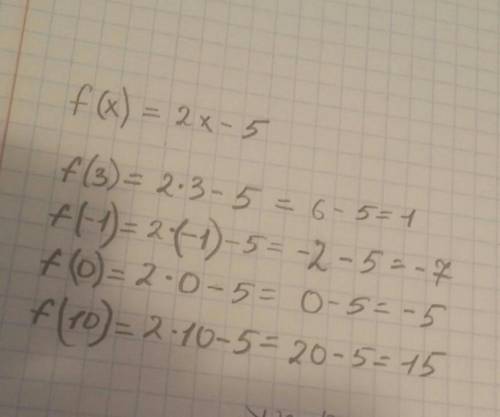 f(x) = 2x - 5
f(3) = 2·3 - 5 = 6 - 5 = 1
f(-1) = 2·(-1) - 5 = -2 - 5 = -7
f(0) = 2·0 - 5 = 0 - 5 = -5
f(10) = 2·10 - 5 = 20 - 5 = 15